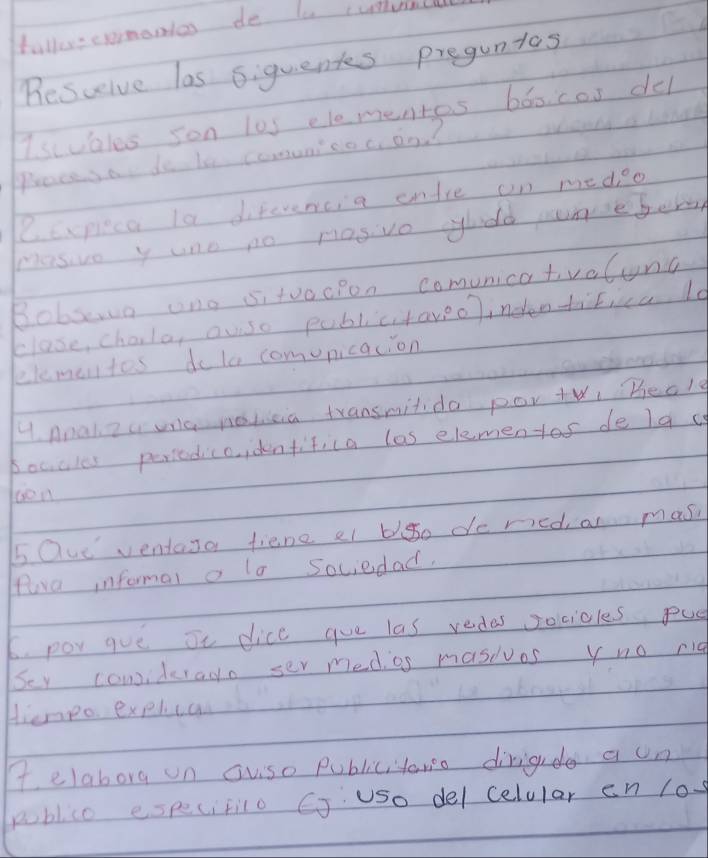 taller: elementos de la comunica
Resuelve las siguientes preguntas
1. cuales son los elementos básicos del
Proceso de la comunicacion?
2. Expl?ca la diferencia entre un med?o
masivo y uno no masivo y da un
3 observa una situac?on comunicativa (una
clase, charla, aviso publicitar?o), indentifica lo
elementos de la comunicacion
4. Analiza una noticia transmitida por tv,
sociales periodico, identifica las elementos de la co
ion
5. Que ventaja tiene el uso de medios mas
Para informar a la sociedad.
6. por qué se dice que las redes sociales pue
Ser considerado ser medios masivos y no
tiempo. explica
7. elabora un aviso Publicitario dirigido a un
publico especifico Ej: uso del celular en los